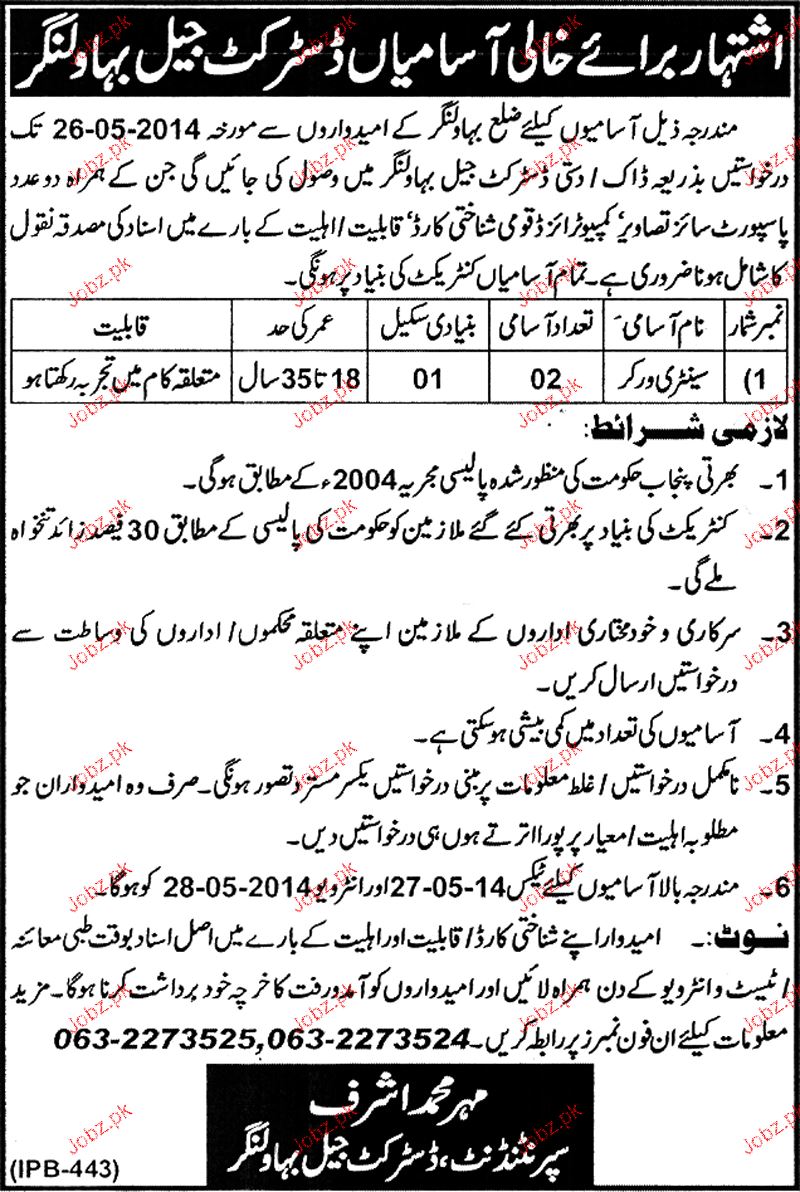 اشتہار برائے خالی آسامیاں ڈسٹرکٹ جیل بہاولنگر
مندرجہ ذیل آسامیوں کیلئے ضلع بہاولنگر کے امیدواروں سے مورخہ 26-05-2014 تک
درخواستیں بذریعہ ڈاک / دستی ڈسٹرکٹ جیل بہاولنگر میں وصول کی جائیں گی جن کے ہمراہ دو عدد
پاسپورٹ سائز تصاویر' کمپیوٹرائزڈ قومی شناختی کارڈ' قابلیت / اہلیت کے بارے میں اسناد کی مصدقہ نقول
کا شامل ہونا ضروری ہے۔ تمام آسامیاں کنٹریکٹ کی بنیاد پر ہونگی۔
نمبر شمار نام آسامی تعداد آسامی بنیادی سکیل عمر کی حد قابلیت
1) سینٹری ورکر 02 01 18 تا 35 سال متعلقہ کام میں تجربہ رکھتا ہو
لازمی شرائط:
1۔ بھرتی پنجاب حکومت کی منظور شدہ پالیسی مجریہ 2004ء کے مطابق ہوگی۔
2۔ کنٹریکٹ کی بنیاد پر بھرتی کئے گئے ملازمین کو حکومت کی پالیسی کے مطابق 30 فیصد زائد تنخواہ
ملے گی۔
3۔ سرکاری و خود مختاری اداروں کے ملازمین اپنے متعلقہ محکموں / اداروں کی وساطت سے
درخواستیں ارسال کریں۔
4۔ آسامیوں کی تعداد میں کمی بیشی ہوسکتی ہے۔
5۔ نامکمل درخواستیں / غلط معلومات پر مبنی درخواستیں یکسر مسترد تصور ہونگی۔ صرف وہ امیدواران جو
مطلوبہ اہلیت / معیار پر پورا اترتے ہوں ہی درخواستیں دیں۔
6۔ مندرجہ بالا آسامیوں کیلئے ٹیکس 27-05-14 اور انٹرویو 28-05-2014 کو ہوگا۔
نوٹ:۔ امیدوار اپنے شناختی کارڈ / قابلیت اور اہلیت کے بارے میں اصل اسناد بوقت طبی معائنہ
/ ٹیسٹ و انٹرویو کے دن ہمراہ لائیں اور امیدواروں کو آمدورفت کا خرچہ خود برداشت کرنا ہوگا۔ مزید
معلومات کیلئے ان فون نمبرز پر رابطہ کریں۔ 063-2273524, 063-2273525
مہر محمد اشرف
سپرنٹنڈنٹ، ڈسٹرکٹ جیل بہاولنگر
(IPB-443)
Jobz.pk